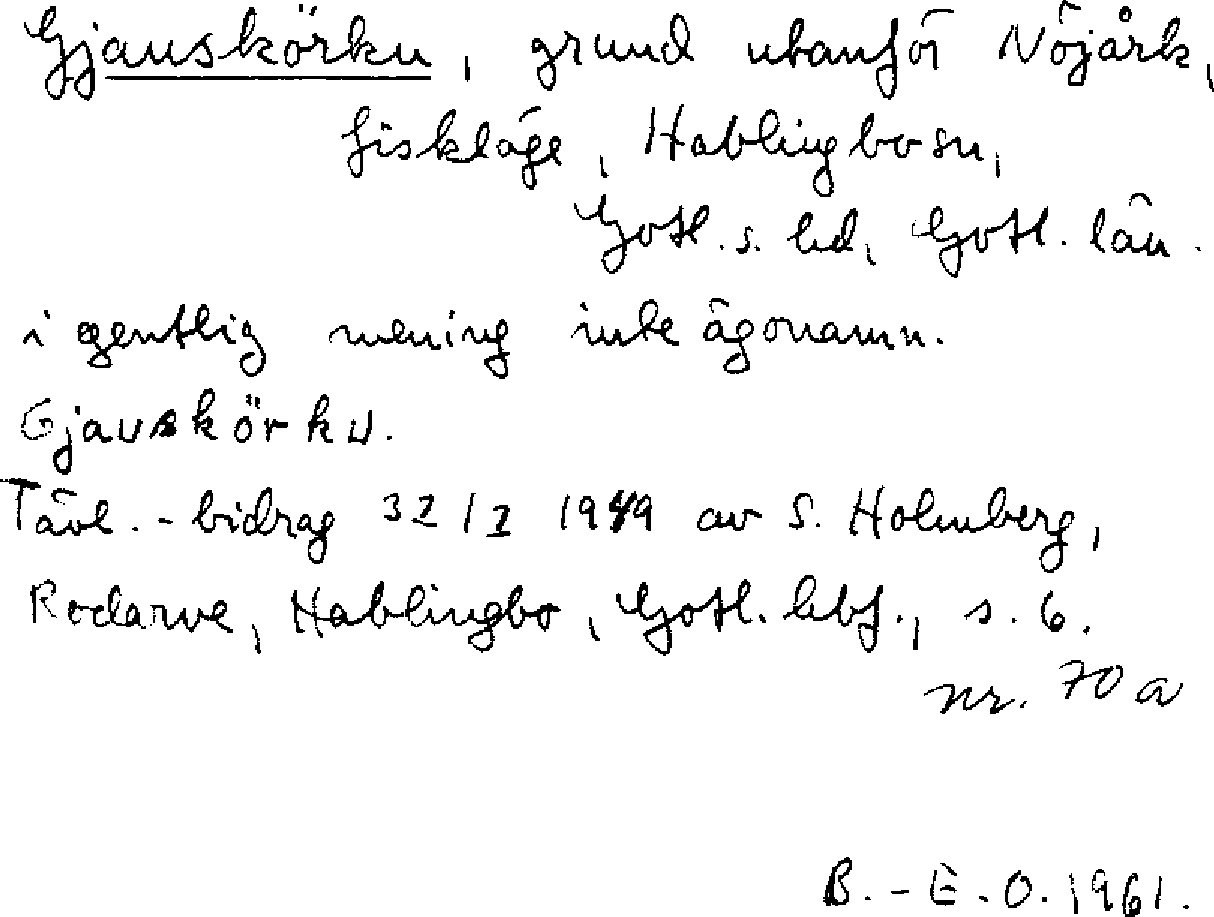 Gjauskörku, grund utanför Nöjårk,
fiskläge, Hablingbo sn,
Gotl. s. hd, Gotl. län.
i gentlig mening inte ägonamn.
Gjauskörku.
Tävl.-bidrag 32/2 1949 av S. Holmberg,
Rodarve, Hablingbo, Gotl. hbf., s. 6.
nr. 70 a
B.-E.O. 1961.